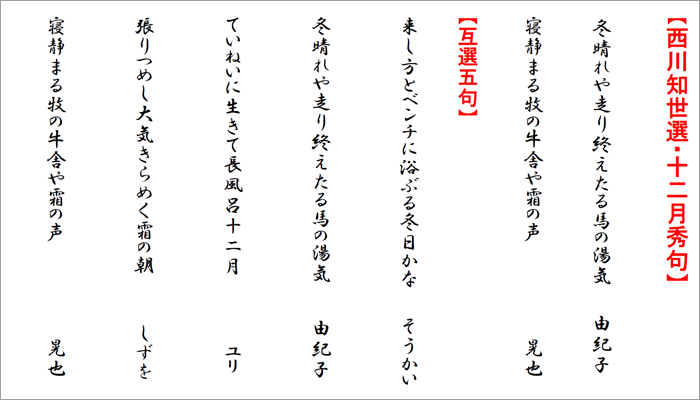 【西川知世選・十二月秀句】
冬晴れや走り終えたる馬の湯気 由紀子
寝静まる牧の牛舎や霜の声 晃也
【互選五句】
来し方とベンチに浴ぶる冬日かな そうかい
冬晴れや走り終えたる馬の湯気 由紀子
ていねいに生きて長風呂十二月 ユリ
張りつめし大気きらめく霜の朝 しずを
寝静まる牧の牛舎や霜の声 晃也